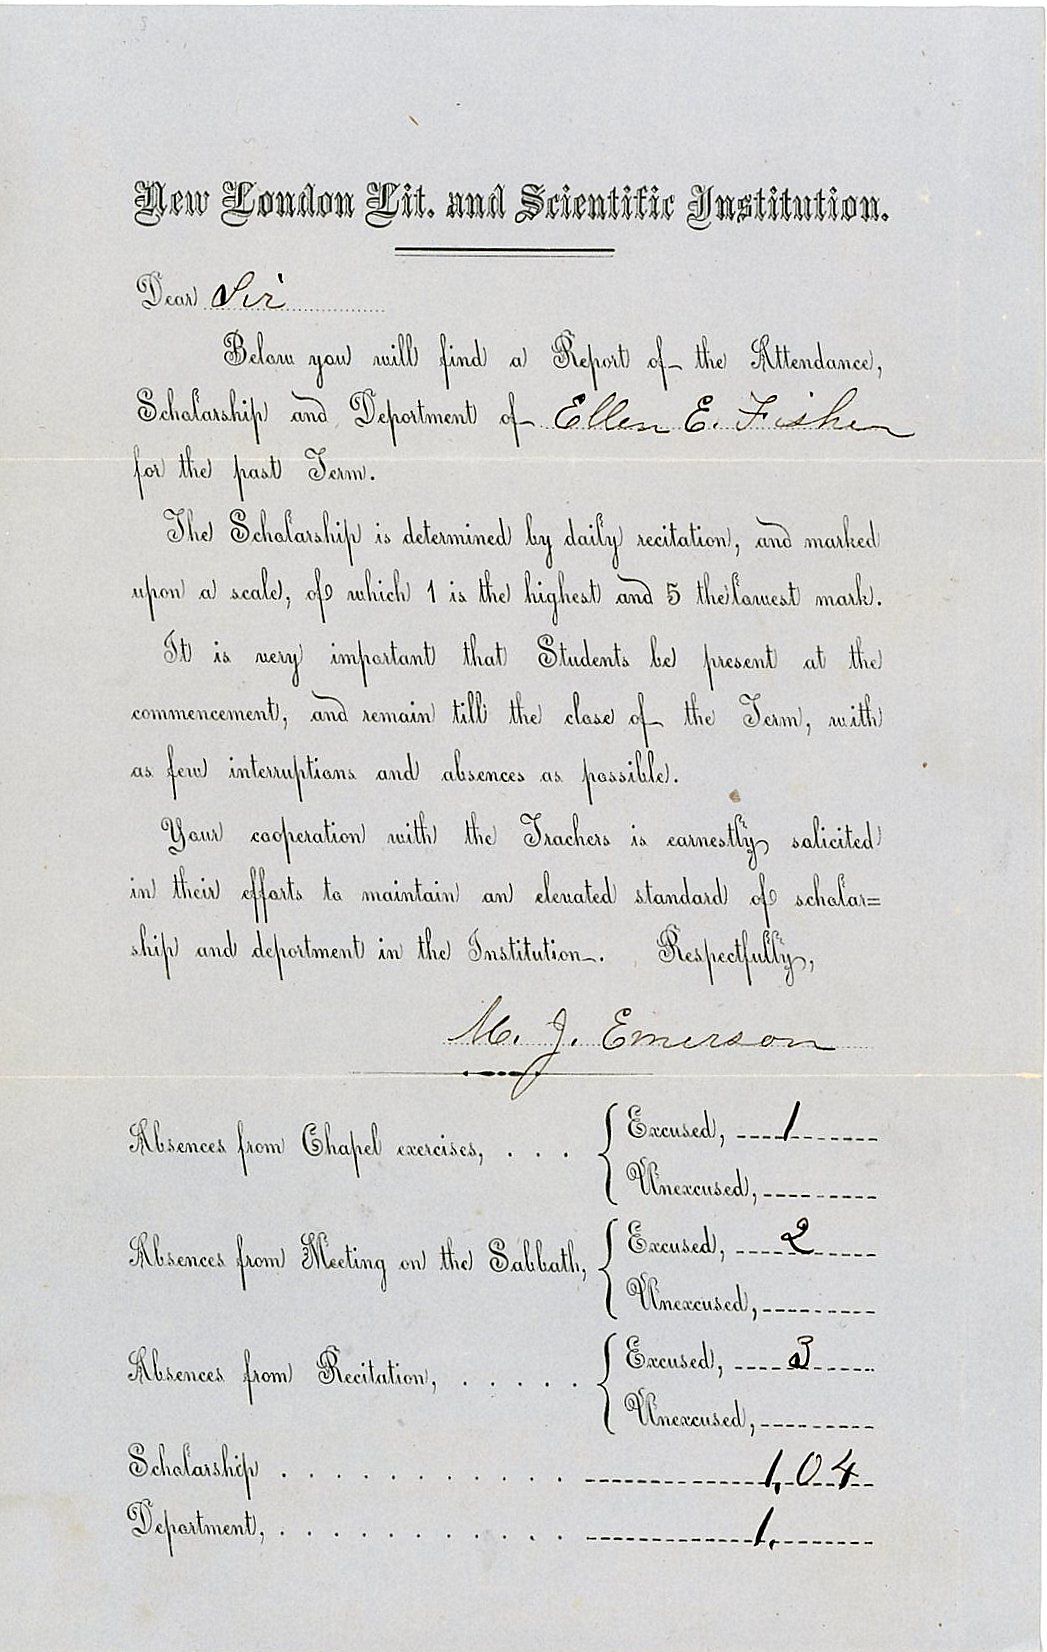 New London Lit. and Scientific Institution.
Dear Sir
Below you will find a Report of the Attendance,
Scholarship and Deportment of Ellen E. Fisher
for the past Term.
The Scholarship is determined by daily recitation, and marked
upon a scale, of which 1 is the highest and 5 the lowest mark.
It is very important that Students be present at the
commencement, and remain till the close of the Term, with
as few interruptions and absences as possible.
Your cooperation with the Trachers is earnestly solicited
in their efforts to maintain an elevated standard of scholar=
ship and deportment in the Institution. Respectfully,
M. J. Emerson
Absences from Chapel exercises, . . . Excused, 1
Unexcused,
Absences from Meeting on the Sabbath, Excused, 2
Unexcused,
Absences from Recitation, . . . . . Excused, 3
Unexcused,
Scholarship . . . . . . . . . . . 1,04
Deportment, . . . . . . . . . . . 1,